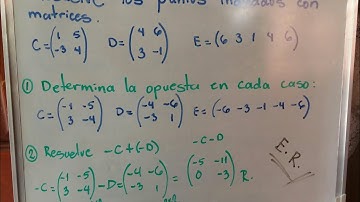 los puntos indicados con
matrices.
C=(1 5 -3 4) D=(4 6 3 -1) E=(6 3 1 4 6)
① Determina la opuesta en cada caso:
C=(-1 -5 3 -4) D=(-4 -6 -3 1) E=(-6 -3 -1 -4 -6)
② Resuelve -C+(-D) -C-D
-C=(-1 -5 3 -4) -D=(-4 -6 -3 1) =(-5 -11 0 -3) R.
E.R.